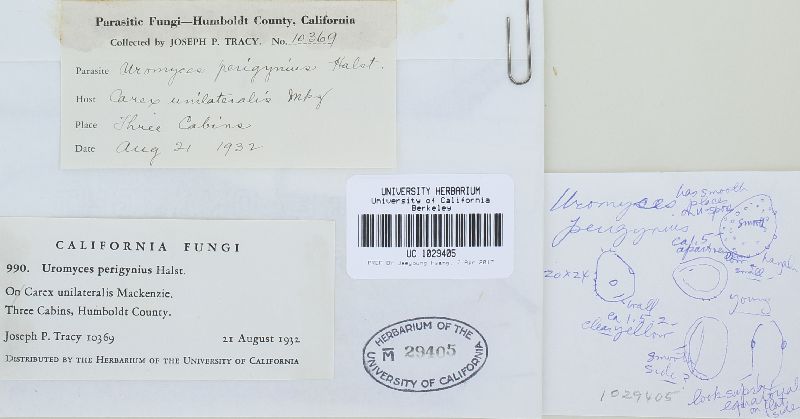 Parasitic Fungi—Humboldt County, California
Collected by JOSEPH P. TRACY. No. 10369
Parasite Uromyces perigynius Halst.
Host Carex unilateralis Mkz
Place Three Cabins
Date Aug 21 1932
UNIVERSITY HERBARIUM
University of California
Berkeley
UC 1029405
CALIFORNIA FUNGI
990. Uromyces perigynius Halst.
On Carex unilateralis Mackenzie.
Three Cabins, Humboldt County.
Joseph P. Tracy 10369 21 August 1932
DISTRIBUTED BY THE HERBARIUM OF THE UNIVERSITY OF CALIFORNIA
HERBARIUM OF THE
M 29405
UNIVERSITY OF CALIFORNIA
Uromyces
perigynius
has smooth
place
on u-spore
smooth
ca 1.5
apart
small
20 x 24
wall
ca 1.5-2
clear yellow
young
smooth
side?
look supra
equatorial
on flat
side
1029405